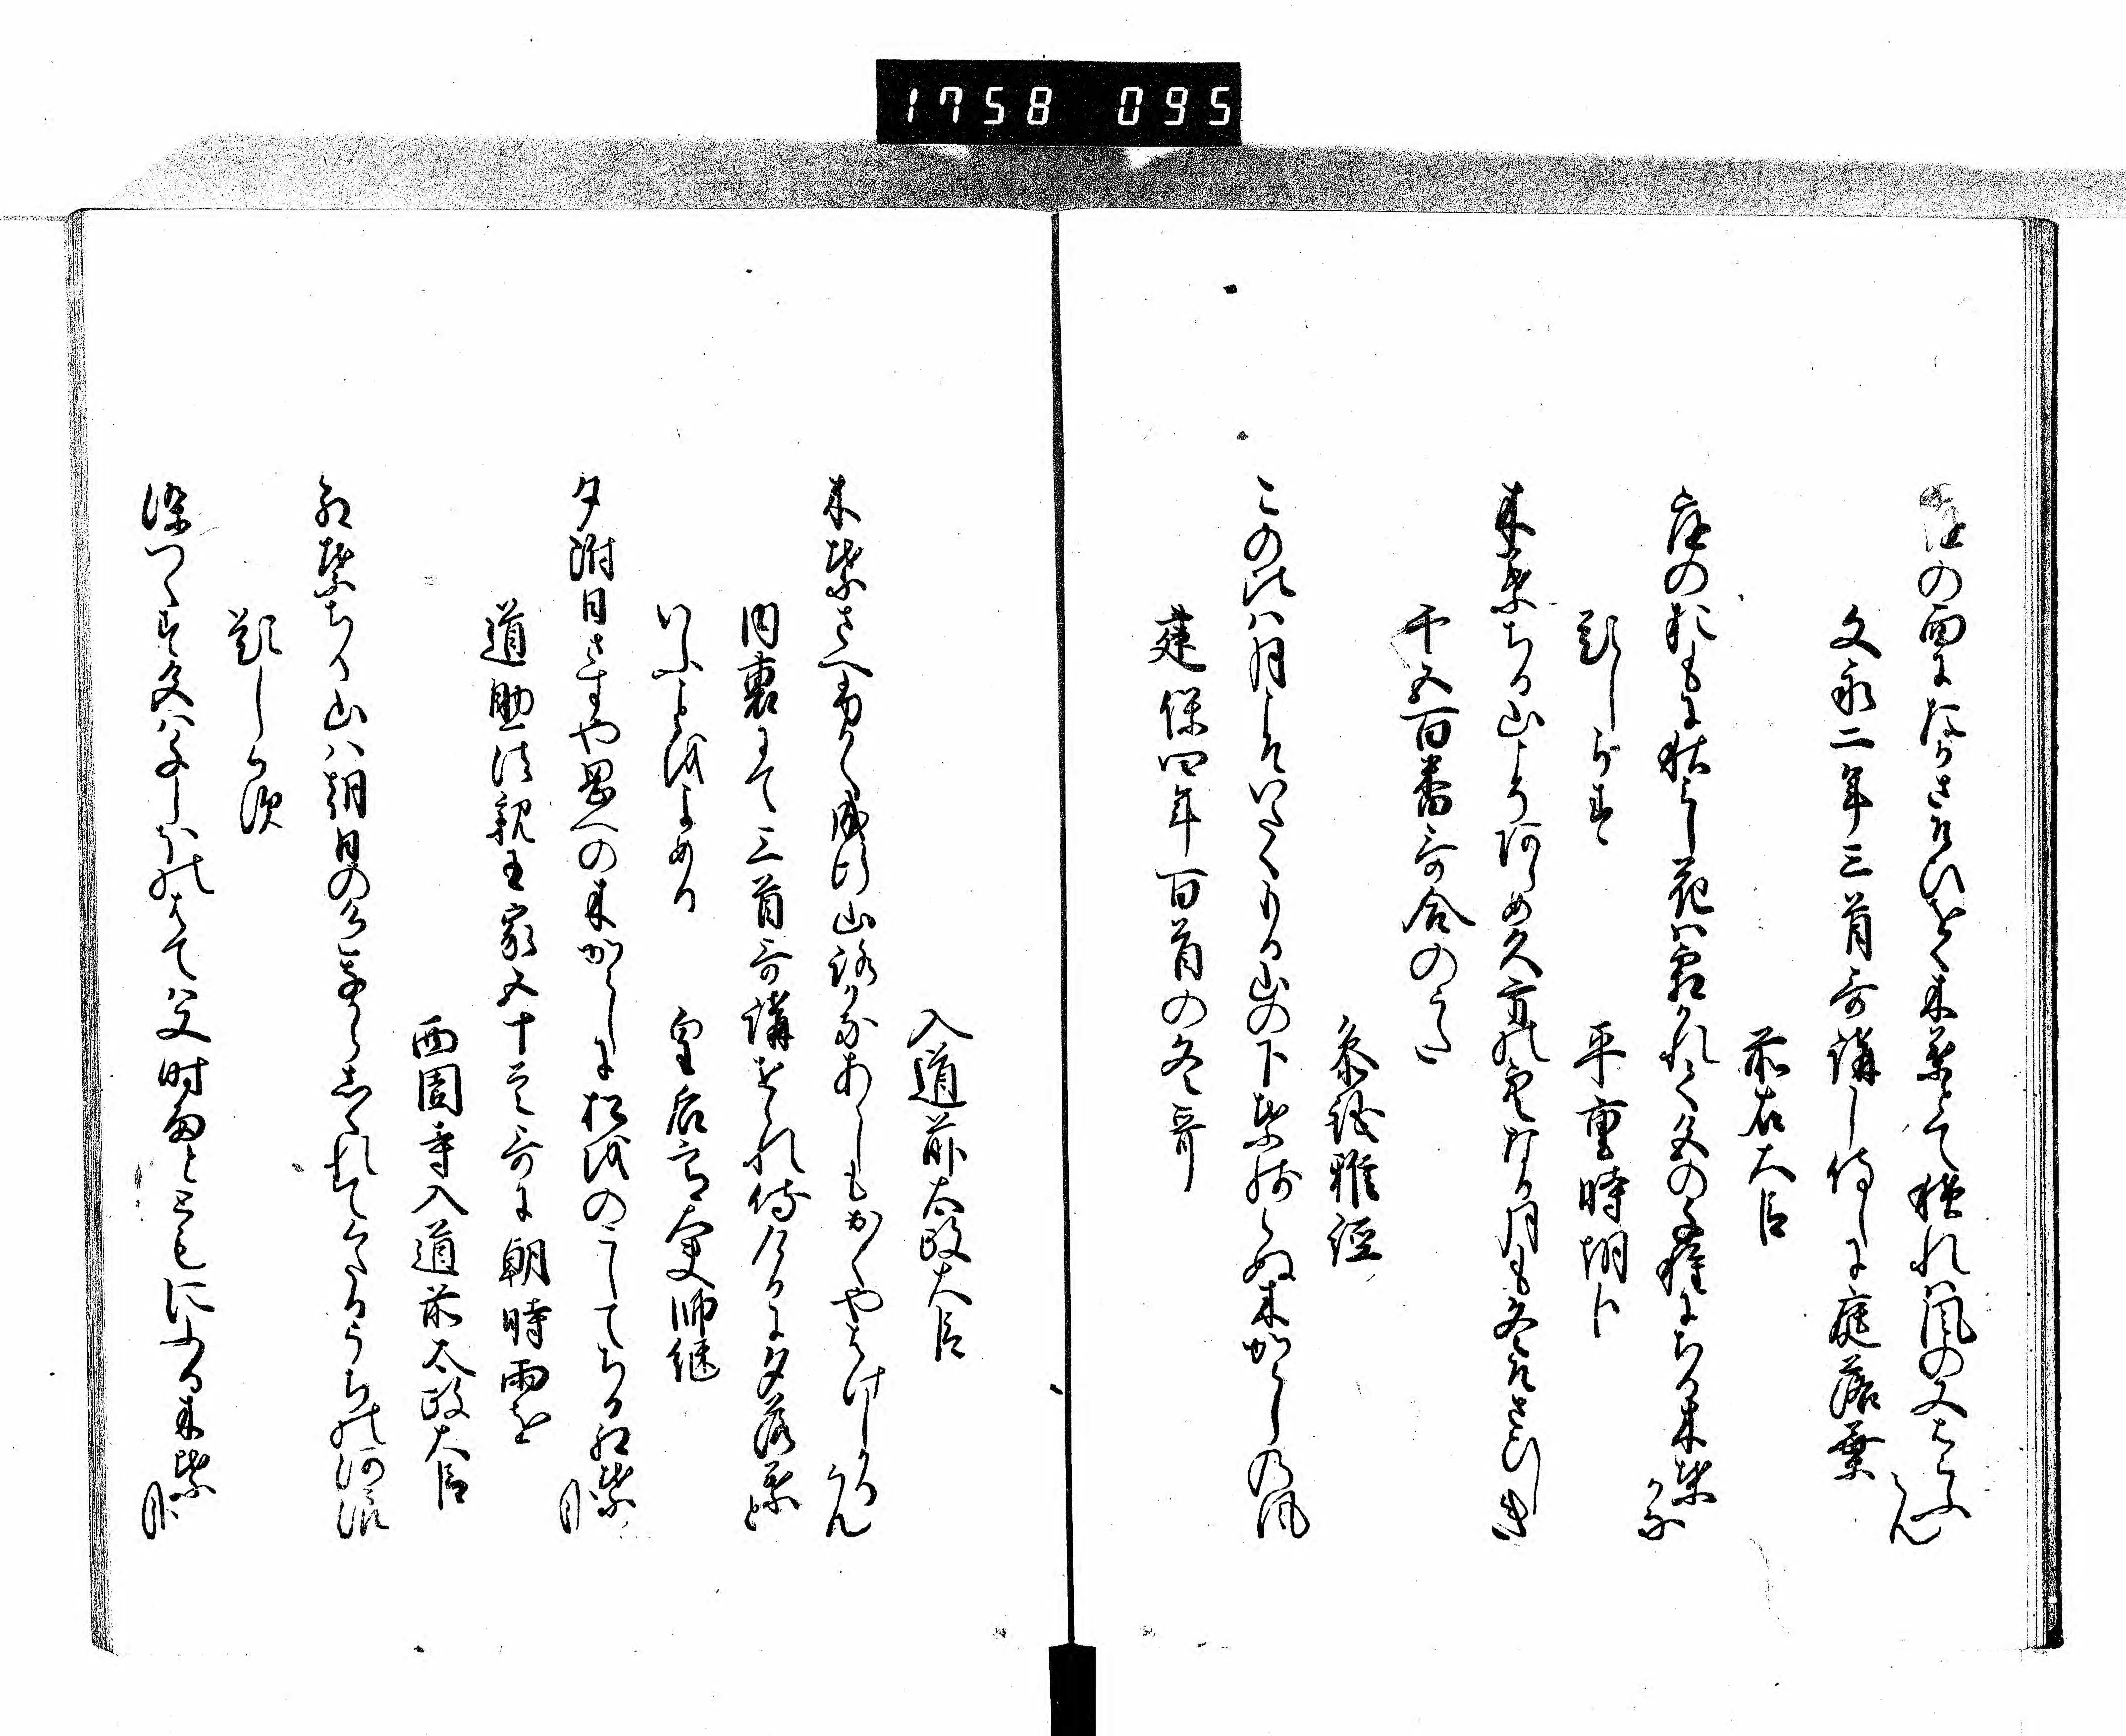 1758 095
庭の面にたかさそひをく木葉とて積れは風の又はらふらん
文永二年三首哥講し侍しに庭落葉
前右大臣
庭のおもに枯らし花は霜かれて冬の籬にちる木葉かな
題しらす
平重時朝臣
木葉ちる山こそあらめ久方の空なる月も冬そさひしき
千五百番哥合のうた
参議雅経
この比は月こそいたくもる山の下葉残らぬ木からしの風
建保四年百首の冬哥
入道前太政大臣
木葉さへ易く成行山路かなあらしもかくやはけしかるらん
内裏にて三首哥講せられ侍けるに夕落葉と
いふ事をよめる
皇后宮大夫師継
夕附日さすや岡への木からしに松をのこしてちる紅葉哉
道助法親王家五十首哥に朝時雨を
西園寺入道前太政大臣
紅葉ちる山は朝日の色なからしくれてくたるうちの河浪
題しらす
染つくす冬はなしほのはては又時雨とともにふる木葉哉